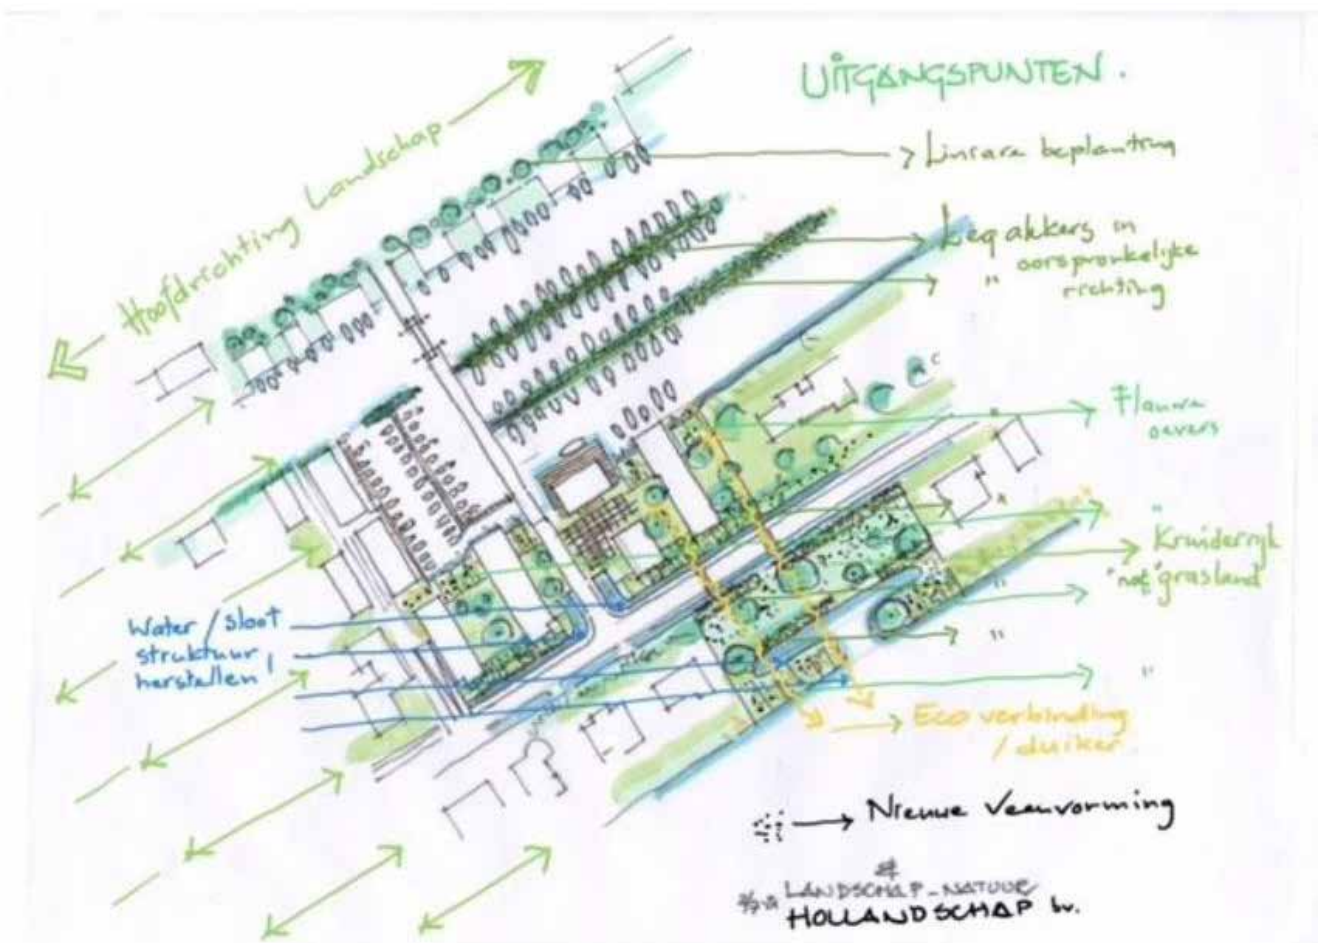 UITGANGSPUNTEN.
Hoofdrichting Landschap
Liniare beplanting
Legakkers in
oorspronkelijke
" richting
Flauwe
oevers
"
Kruiderrijk
"nat" grasland
"
"
"
Water/sloot
struktuur
herstellen!
Eco verbinding
/duiker.
Nieuwe Veenvorming
LANDSCHAP-NATUUR
HOLLANDSCHAP bv.